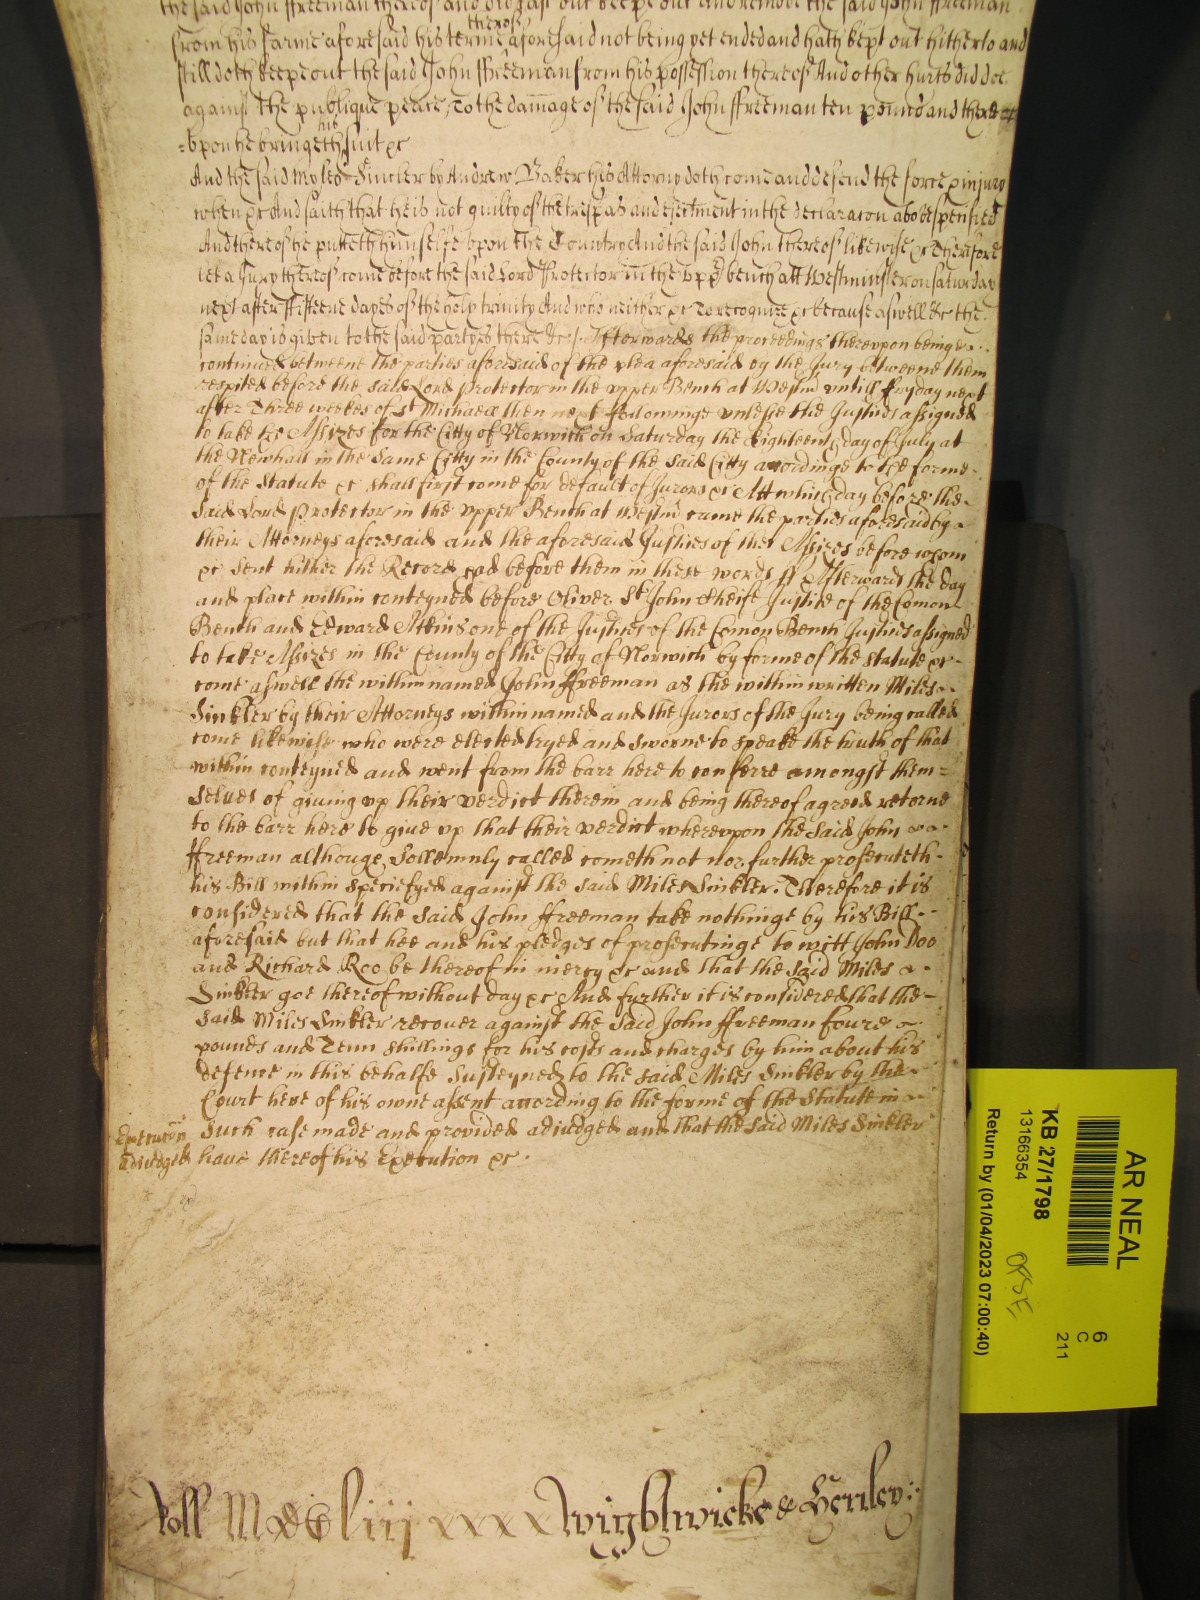 the said John ffreeman thereof and did cast out keepe out and remove the said John ffreeman
thereof
from his farme aforesaid his terme aforesaid not being yet ended and hath kept out hitherto and
still doth keepe out the said John ffreeman from his possession thereof And other hurts did doe
against the publique peace, To the damage of the said John ffreeman ten pound and there
his
=upon he bringeth suit &c
And the said Myles Sincler by Andrew Baker his Attorny doth come and defend the force & injury
when &c And saith that he is not guilty of the trespas and ejectment in the declaracon above specified
And thereof he putteth himselfe upon the Country And the said John thereof likewise &c Therefore
let a Jury thereof come before the said Lord Protector in the upp bench att Westminster on saturday
next after fifteene dayes of the holy trinity And who neither &c To recognize &c because aswell &c the
same day is given to the said partyes there &c /. Afterwards the proceedings thereupon being
continued betweene the parties aforesaid of the plea aforesaid by the Jury betweene them
respited before the said Lord Protector in the upper Bench at Westm untill fryday next
after Three weekes of St Michaell then next followinge unlesse the Justices assigned
to take the Assizes for the Citty of Norwich on Saturday the Eighteenth day of July at
the Newhall in the same Citty in the County of the said Citty accordinge to the forme
of the Statute &c shall first come for default of Jurors &c Att which day before the
said Lord Protector in the upper Bench at Westm came the parties aforesaid by
their Attorneys aforesaid and the aforesaid Justices of the Assizes before whom
&c sent hither the Record had before them in these words ss Afterwards the day
and place within conteyned before Oliver St John Cheife Justice of the Comon
Bench and Edward Atkins one of the Justices of the Comon Bench Justices assigned
to take Assizes in the County of the Citty of Norwich by forme of the statute &c
come aswell the within named John ffreeman as the within written Miles
Sinkler by their Attorneys within named and the Jurors of the Jury being called
come likewise who were elected tryed and sworne to speake the truth of that
within conteyned and went from the barr here to conferre amongst them=
selves of giving up their verdict therein and being thereof agreed retorne
to the barr here to give up that their verdict whereupon the said John
ffreeman althouge sollemnly called cometh not nor further prosecuteth
his Bill within speciefyed against the said Miles Sinkler. Therefore it is
considered that the said John ffreeman take nothinge by his Bill
aforesaid but that hee and his pledges of prosecutinge to witt John Doo
and Richard Roo be thereof in mercy &c and that the said Miles
Sinkler goe thereof without day &c And further it is considered that the
said Miles Sinkler recover against the said John ffreeman foure
pounds and Tenn shillings for his costs and charges by him about his
defence in this behalfe susteyned to the said Miles Sinkler by the
Court here of his owne assent according to the forme of the Statute in
such case made and provided adjudged and that the said Miles Sinkler
have thereof his Execution &c .
Execucon
adjudged
Roll MDCLiij xxxx Wightwicke & Henley
AR NEAL
6
C
211
KB 27/1798
13166354
Return by (01/04/2023 07:00:40)